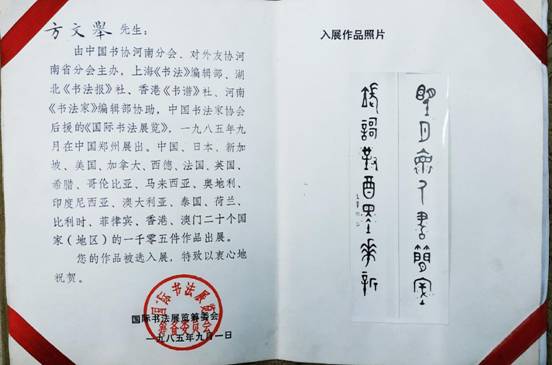 方文举 先生：
由中国书协河南分会、对外友协河
南省分会主办，上海《书法》编辑部、湖
北《书法报》社、香港《书谱》社、河南
《书法家》编辑部协助，中国书法家协会
后援的《国际书法展览》，一九八五年九
月在中国郑州展出。中国、日本、新加
坡、美国、加拿大、西德、法国、英国、
希腊、哥伦比亚、马来西亚、奥地利、
印度尼西亚、澳大利亚、泰国、荷兰、
比利时、菲律宾、香港、澳门二十个国
家（地区）的一千零五件作品出展。
您的作品被选入展，特致以衷心地
祝贺。
国际书法展览
筹备委员会
国际书法展览筹委会
一九八五年九月一日
入展作品照片